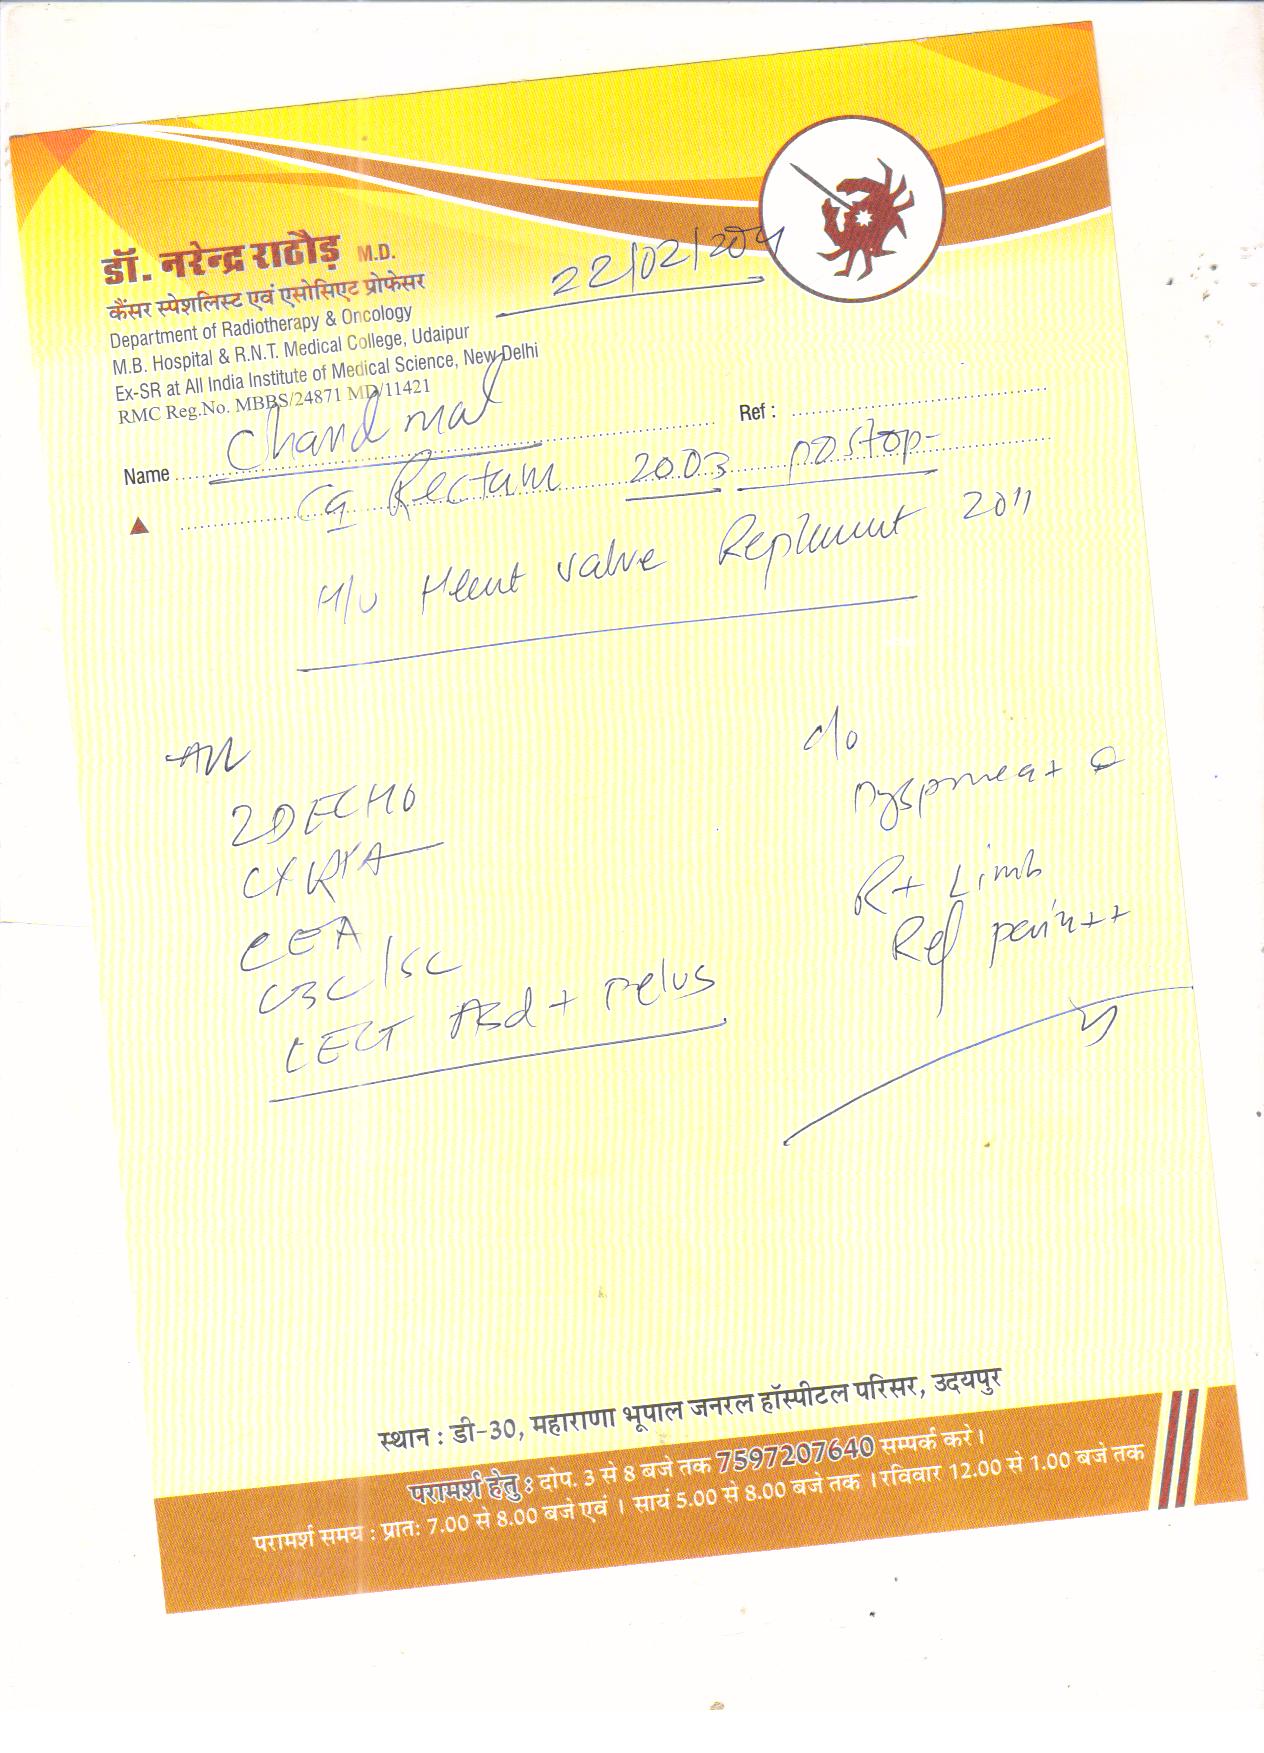 डॉ. नरेन्द्र राठौड़ M.D.
कैंसर स्पेशलिस्ट एवं एसोसिएट प्रोफेसर
Department of Radiotherapy & Oncology
M.B. Hospital & R.N.T. Medical College, Udaipur
Ex-SR at All India Institute of Medical Science, New Delhi
RMC Reg.No. MBBS/24871 MD/11421
22/02/
Name Chand mal
Ref :
Ca Rectum 2003 postop-
H/o Heart valve Replment 2011
Adv
2D ECHO
CXR PA
CEA
CBC / SC
CECT Abd + Pelvis
c/o
Dyspnea +
Rt Limb
Ref pain ++
स्थान : डी-30, महाराणा भूपाल जनरल हॉस्पीटल परिसर, उदयपुर
परामर्श हेतु : दोप. 3 से 8 बजे तक 7597207640 सम्पर्क करे।
परामर्श समय : प्रात: 7.00 से 8.00 बजे एवं । सायं 5.00 से 8.00 बजे तक । रविवार 12.00 से 1.00 बजे तक